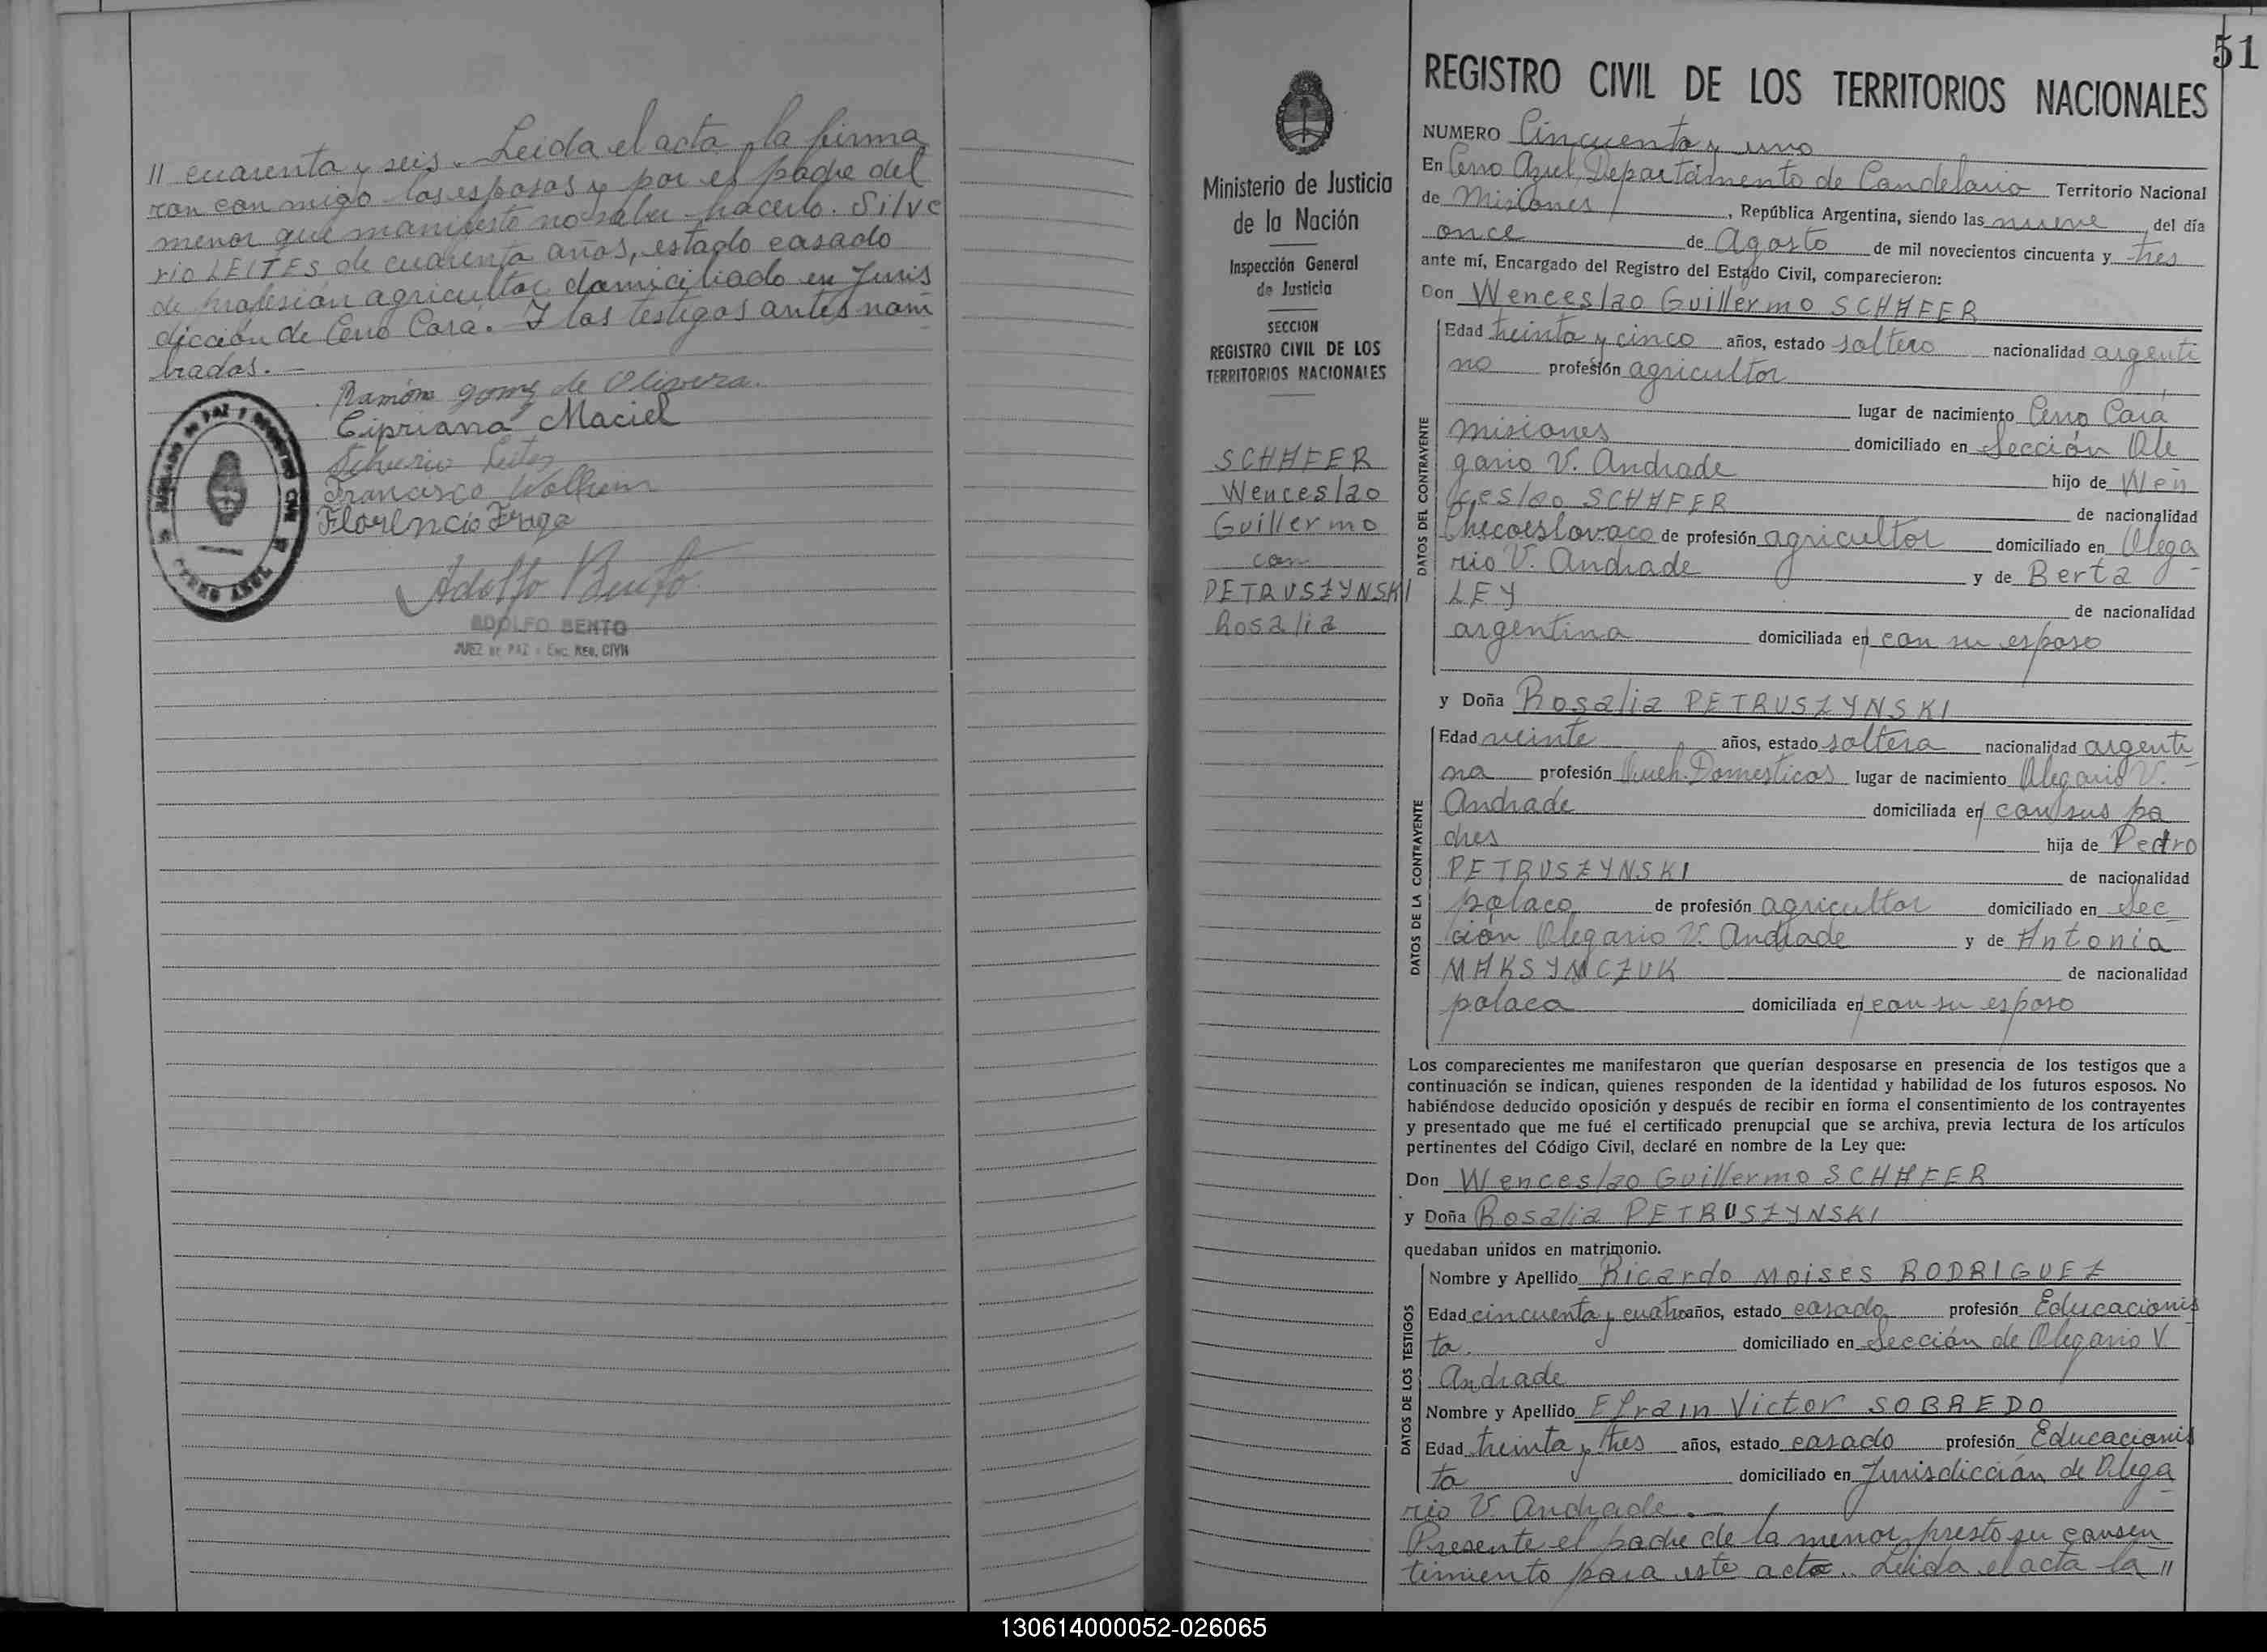 // cuarenta y seis. Leida el acta la firma
ron conmigo los esposos y por el padre del
menor que manifestó no saber hacerlo. Silve
rio LEITES de cuarenta años, estado casado
de profesión agricultor domiciliado en Juris
dicción de Cerro Corá. Y los testigos antes nom
brados.
Ramón gomez de Olivera.
Cipriana Maciel
Leites
Francisco
Florencio Fraga
Adolfo Bento
ADOLFO BENTO
JUEZ DE PAZ - ENC. REG. CIVIL
51
Ministerio de Justicia
de la Nación
Inspección General
de Justicia
SECCION
REGISTRO CIVIL DE LOS
TERRITORIOS NACIONALES
SCHAFER
Wenceslao
Guillermo
con
PETRUSZYNSKI
Rosalia
REGISTRO CIVIL DE LOS TERRITORIOS NACIONALES
NUMERO Cincuenta y uno
En Cerro Azul, Departamento de Candelaria Territorio Nacional
de Misiones, República Argentina, siendo las nueve del día
once de Agosto de mil novecientos cincuenta y tres
ante mí, Encargado del Registro del Estado Civil, comparecieron:
Don Wenceslao Guillermo SCHAFER
DATOS DEL CONTRAYENTE
Edad treinta y cinco años, estado soltero nacionalidad argenti
no profesión agricultor
lugar de nacimiento Cerro Corá
misiones domiciliado en Sección Ole
gario V. Andrade hijo de Wen
ceslao SCHAFER de nacionalidad
Checoeslovaco de profesión agricultor domiciliado en Olega
rio V. Andrade y de Berta
LEY de nacionalidad
argentina domiciliada en con su esposo
y Doña Rosalia PETRUSZYNSKI
DATOS DE LA CONTRAYENTE
Edad veinte años, estado soltera nacionalidad argenti
na profesión Queh. Domésticos lugar de nacimiento Olegario V.
Andrade domiciliada en con sus pa
dres hija de Pedro
PETRUSZYNSKI de nacionalidad
polaco de profesión agricultor domiciliado en Sec
ción Olegario V. Andrade y de Antonia
MAKSYMCZUK de nacionalidad
polaca domiciliada en con su esposo
Los comparecientes me manifestaron que querían desposarse en presencia de los testigos que a
continuación se indican, quienes responden de la identidad y habilidad de los futuros esposos. No
habiéndose deducido oposición y después de recibir en forma el consentimiento de los contrayentes
y presentado que me fué el certificado prenupcial que se archiva, previa lectura de los artículos
pertinentes del Código Civil, declaré en nombre de la Ley que:
Don Wenceslao Guillermo SCHAFER
y Doña Rosalia PETRUSZYNSKI
quedaban unidos en matrimonio.
DATOS DE LOS TESTIGOS
Nombre y Apellido Ricardo Moises RODRIGUEZ
Edad cincuenta y cuatro años, estado casado profesión Educacionis
ta. domiciliado en Sección de Olegario V.
Andrade
Nombre y Apellido Efrain Victor SOBREDO
Edad treinta y tres años, estado casado profesión Educacionis
ta domiciliado en Jurisdicción de Olega
rio V. Andrade.
Presente el padre de la menor presto su consen
timiento para este acto. Leida el acta la //
130614000052-026065